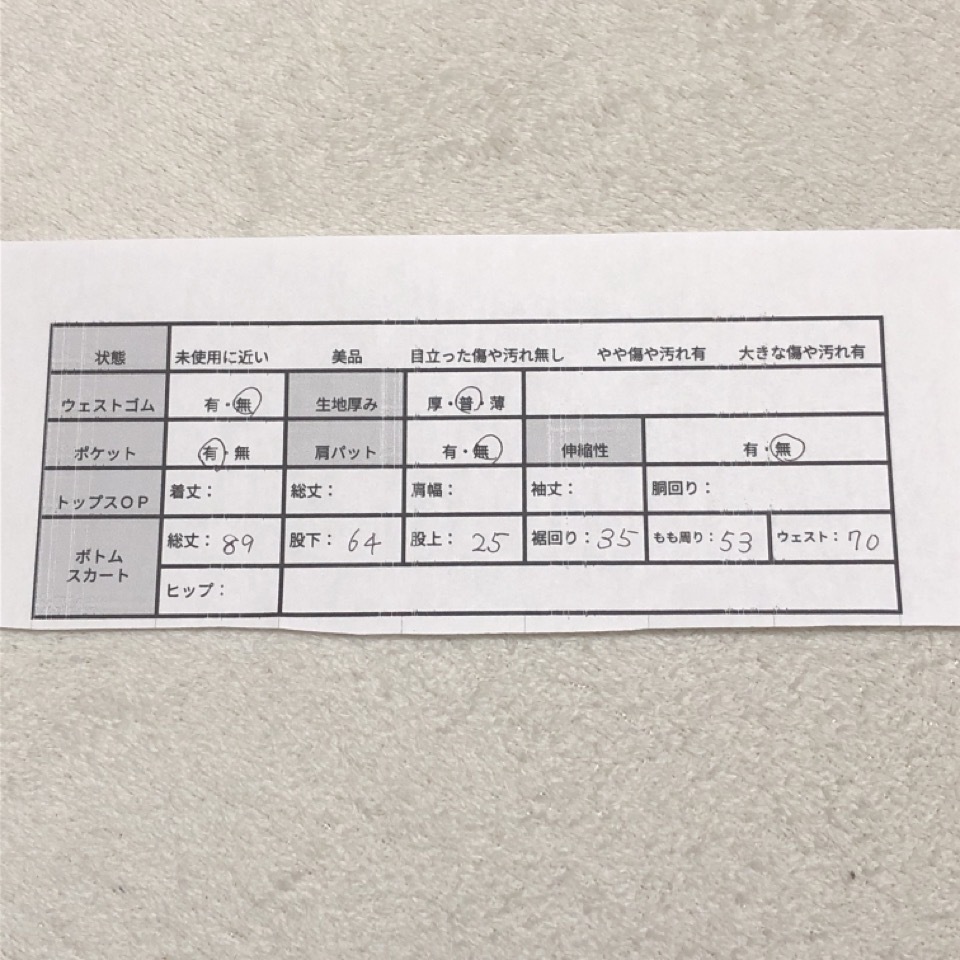 状態 未使用に近い 美品 目立った傷や汚れ無し やや傷や汚れ有 大きな傷や汚れ有
ウェストゴム 有・無 生地厚み 厚・普・薄
ポケット 有・無 肩パット 有・無 伸縮性 有・無
トップスOP 着丈： 総丈： 肩幅： 袖丈： 胴回り：
ボトム
スカート
総丈：89 股下：64 股上：25 裾回り：35 もも周り：53 ウェスト：70
ヒップ：